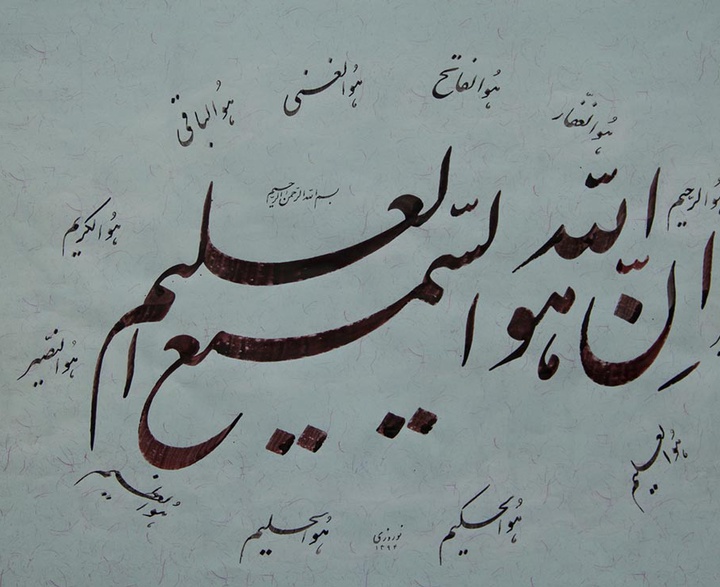 هو الباقی
هو الغنی
هو الفتاح
هو الغفار
هو الرحیم
بسم الله الرحمن الرحیم
ان الله هو السمیع العلیم
هو الکریم
هو النصیر
هو العظیم
هو الحلیم
نوروزی
۱۳۹۴
هو الحکیم
هو العلیم